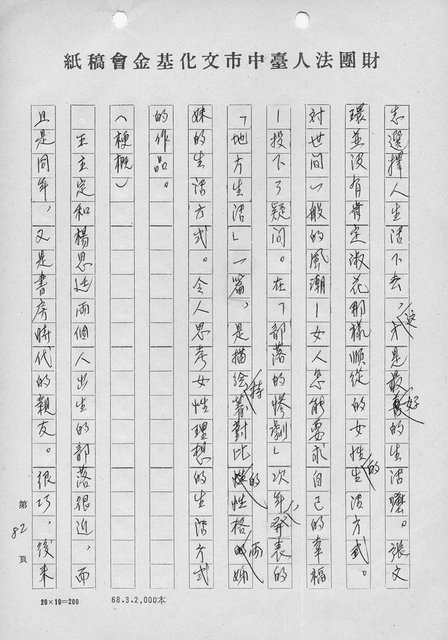 財團法人臺中市文化基金會稿紙
志選擇人生活下去，才是最好的生活嚒。張文
環並沒有肯定淑花那樣順從的女性的生活方式。
對世間一般的風潮—女人怎能要求自己的幸福
—投下了疑問。在「部落的慘劇」次年發表的
「地方生活」一篇，是描繪著對比的性格的兩姊
妹的生活方式。令人思考女性理想的生活方式
的作品。
（梗概）
王主定和楊思廷兩個人出生的部落很近，而
且是同年，又是書房時代的親友。很巧，後來
第82頁
20×10=200
68.3.2,000本